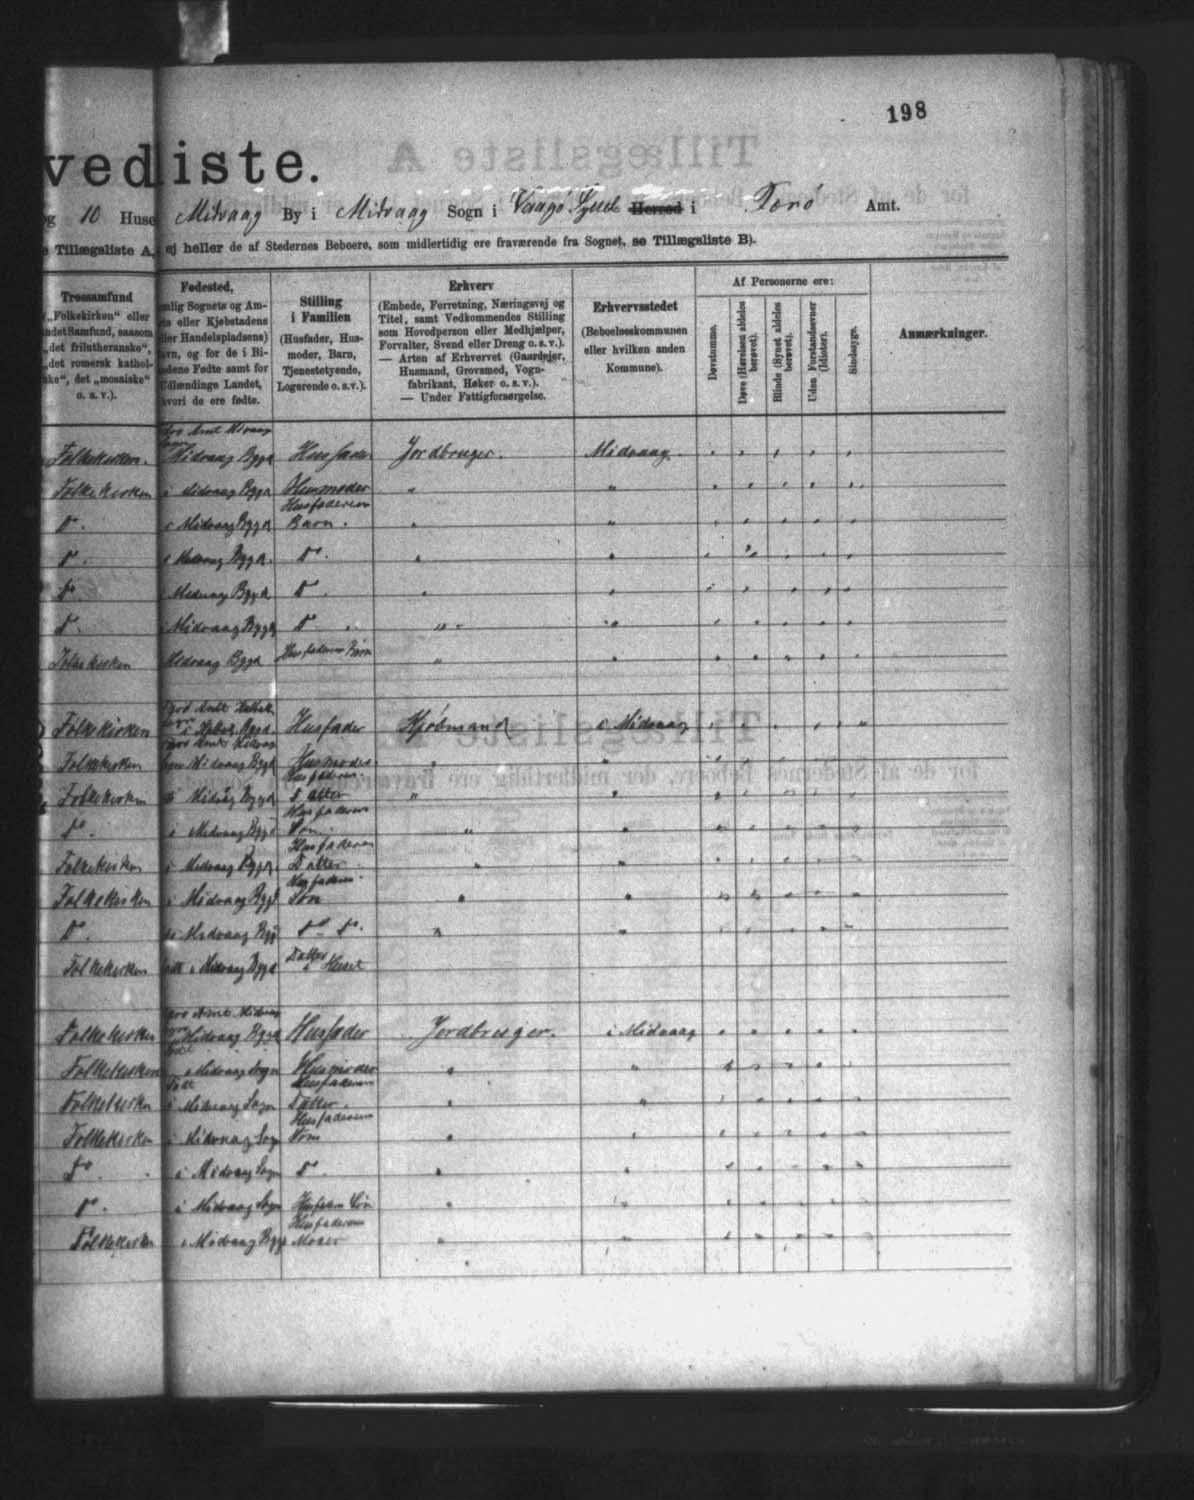 198
vedliste.
og 10 Huse Midvaag By i Midvaag Sogn i Vaagø Syssel Herred i Færø Amt.
e Tillægsliste A, ej heller de af Stedernes Beboere, som midlertidig ere fraværende fra Sognet, se Tillægsliste B).
Trossamfund
(„Folkekirken“ eller
andet Samfund, saasom
„det frilutheranske“,
„det romersk kathol-
ske“, det „mosaiske“
o. s. v.).
Fødested,
nemlig Sognets og Am-
tets eller Kjøbstadens
(eller Handelspladsens)
Navn, og for de i Bi-
landene Fødte samt for
Udlændinge Landet,
hvori de ere fødte.
Stilling
i Familien
(Husfader, Hus-
moder, Barn,
Tjenestetyende,
Logerende o. s. v.).
Erhverv
(Embede, Forretning, Næringsvej og
Titel, samt Vedkommendes Stilling
som Hovedperson eller Medhjælper,
Forvalter, Svend eller Dreng o. s. v.).
— Arten af Erhvervet (Gaardejer,
Husmand, Grovsmed, Vogn-
fabrikant, Høker o. s. v.).
— Under Fattigforsørgelse.
Erhvervsstedet
(Beboelseskommunen
eller hvilken anden
Kommune).
Af Personerne ere:
Døvstumme.
Døve (Hørelsen aldeles
berøvet).
Blinde (Synet aldeles
berøvet).
Uden Forstandsevner
(Idioter).
Sindssyge.
Anmærkninger.
Folkekirken. Midvaag Bygd Husfader Jordbruger. Midvaag.
Folkekirken i Midvaag Bygd Husmoder " "
Husfaderens
D°. i Midvaag Bygd Barn. " "
D°. i Midvaag Bygd. D°. " "
D° i Midvaag Bygd D°. " "
D°. i Midvaag Bygd D°. " "
Folkekirken Midvaag Bygd Husfaderens Børn " "
Folkekirken Husfader Kjøbmand i Midvaag
Folkekirken Midvaag Bygd Husmoder " "
Husfaderens
Folkekirken i Midvaag Bygd Datter "
Husfaderens
D°. i Midvaag Bygd Søn. " "
Husfaderens
Folkekirken i Midvaag Bygd. Datter. " "
Husfaderens
Folkekirken i Midvaag Bygd Søn " "
D°. i Midvaag Bygd D° D°. " "
Folkekirken født i Midvaag Bygd Datter
Folkekirken Midvaag Bygd Husfader Jordbruger. i Midvaag
Født
Folkekirken i Midvaag Sogn Husmoder " "
Født Husfaderens
Folkekirken i Midvaag Sogn Datter. " "
Husfaderens
Folkekirken i Midvaag Sogn Søn " "
D°. i Midvaag Sogn D°. " "
D°. i Midvaag Sogn Søn " "
Husfaderens
Folkekirken i Midvaag Bygd Moder " "